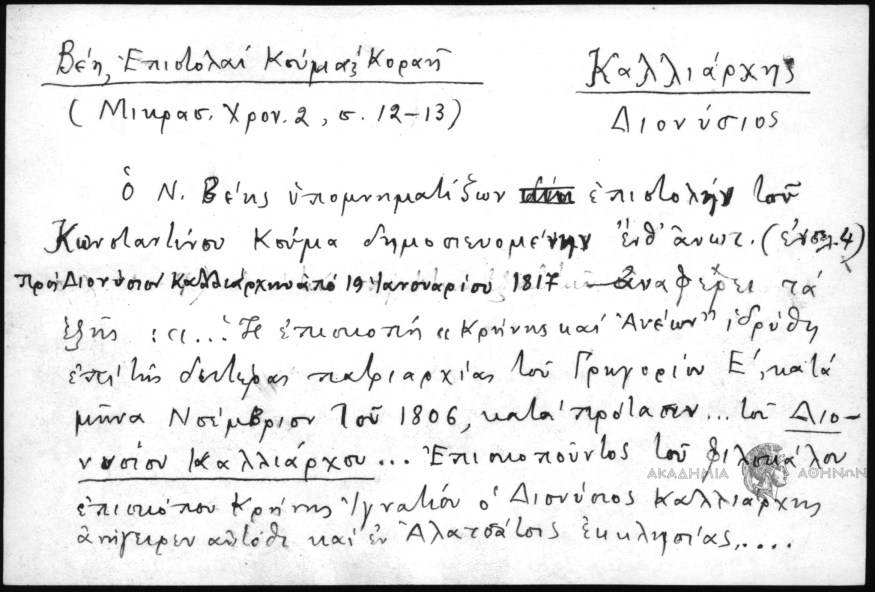 Βέη, Ἐπιστολαί Κούμα & Κοραῆ
Καλλιάρχης
(Μικρασ. Χρον. 2, σ. 12-13)
Διονύσιος
ὁ Ν. Βέης ὑπομνηματίζων ἐπιστολήν τοῦ
Κωνσταντίνου Κούμα δημοσιευομένην ἔνθ' ἀνωτ. (ἐν σελ. 4)
πρός Διονύσιον Καλλιάρχην ἀπό 19 Ἰανουαρίου 1817 ἀναφέρει τά
ἑξῆς : «... Ἡ ἐπισκοπή "Κρήνης καί Ἀνέων" ἱδρύθη
ἐπί τῆς δευτέρας πατριαρχίας τοῦ Γρηγορίου Ε', κατά
μῆνα Νοέμβριον τοῦ 1806, κατά πρότασιν... τοῦ Διο-
νυσίου Καλλιάρχου... Ἐπισκοποῦντος τοῦ φιλοκάλου
ΑΚΑΔΗΜΙΑ ΑΘΗΝΩΝ
ἐπισκόπου Κρήνης Ἰγνατίου ὁ Διονύσιος Καλλιάρχης
ἀνήγειρεν αὐτόθι καί ἐν Ἀλατσάτοις ἐκκλησίας,....